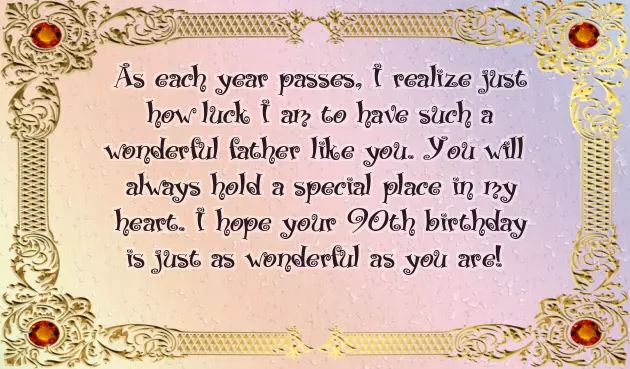 As each year passes, I realize just
how luck I am to have such a
wonderful father like you. You will
always hold a special place in my
heart. I hope your 90th birthday
is just as wonderful as you are!